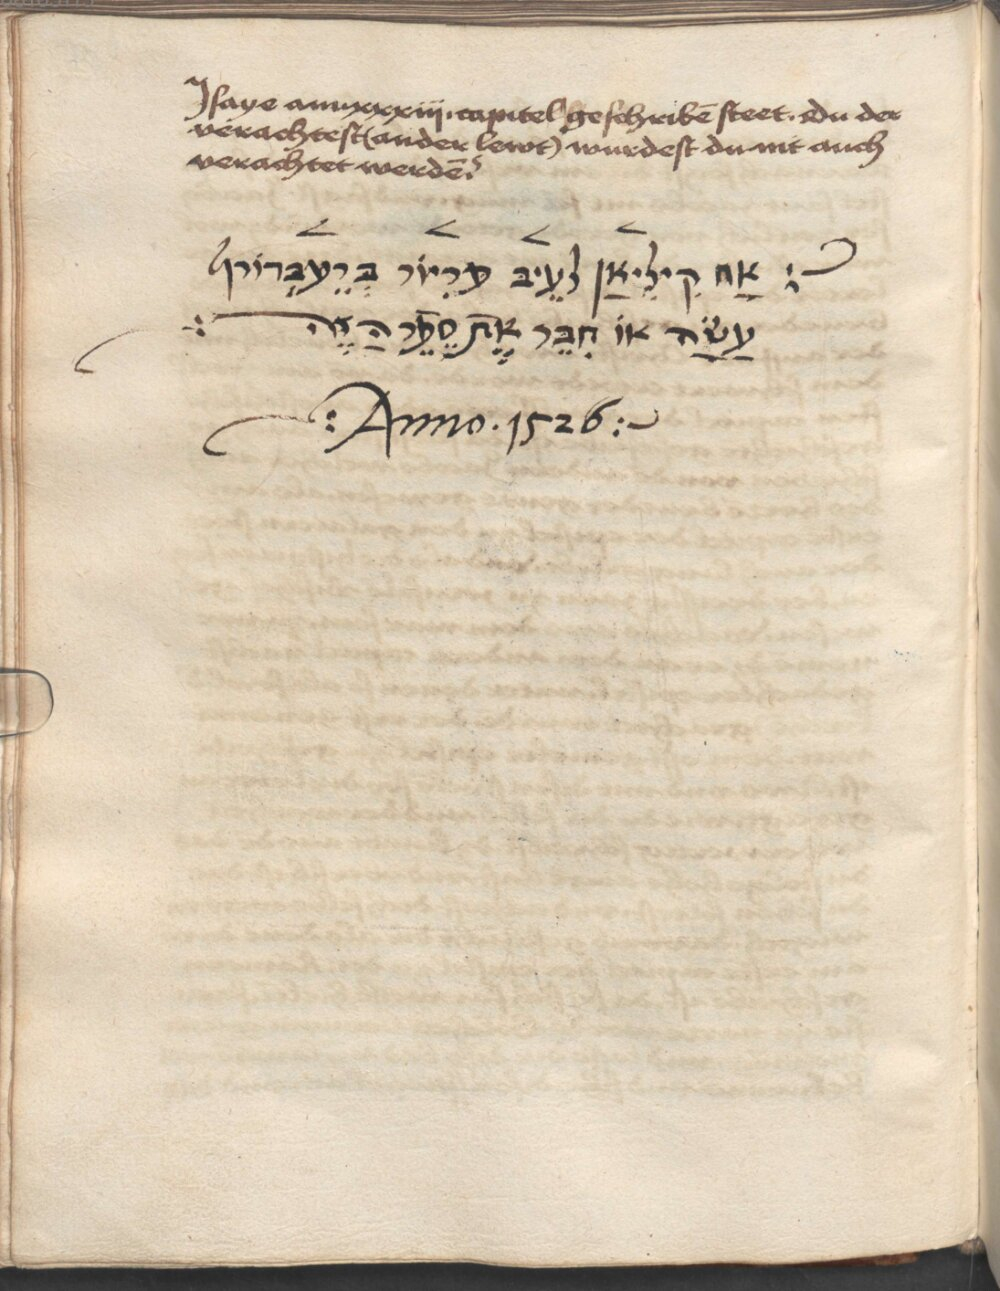 Isaye am xxxiii. capitel geschribē steet. Du der
verachtest (ander lewt) wurdest du nit auch
verachtet werdē?
אַח קִילִיאַן לֵעֶיבּ
עָשָׂה אוֹ חִבֵּר אֶת סֵפֶר הַזֶּה
:Anno. 1526: